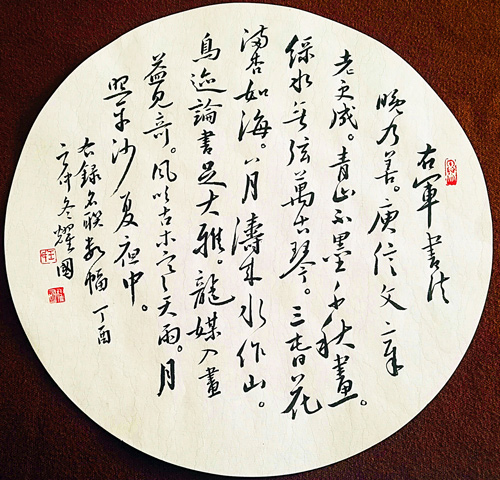 右軍書法
晚乃善。庾信文章
老更成。青山不墨千秋畫。
綠水無弦萬古琴。三春花
滿香如海。八月濤來水作山。
鳥迹論書足大雅。龍媒入畫
益見奇。風吹古木天雨。月
照平沙夏夜中。
右錄名聯數幅 丁酉
仲冬耀國